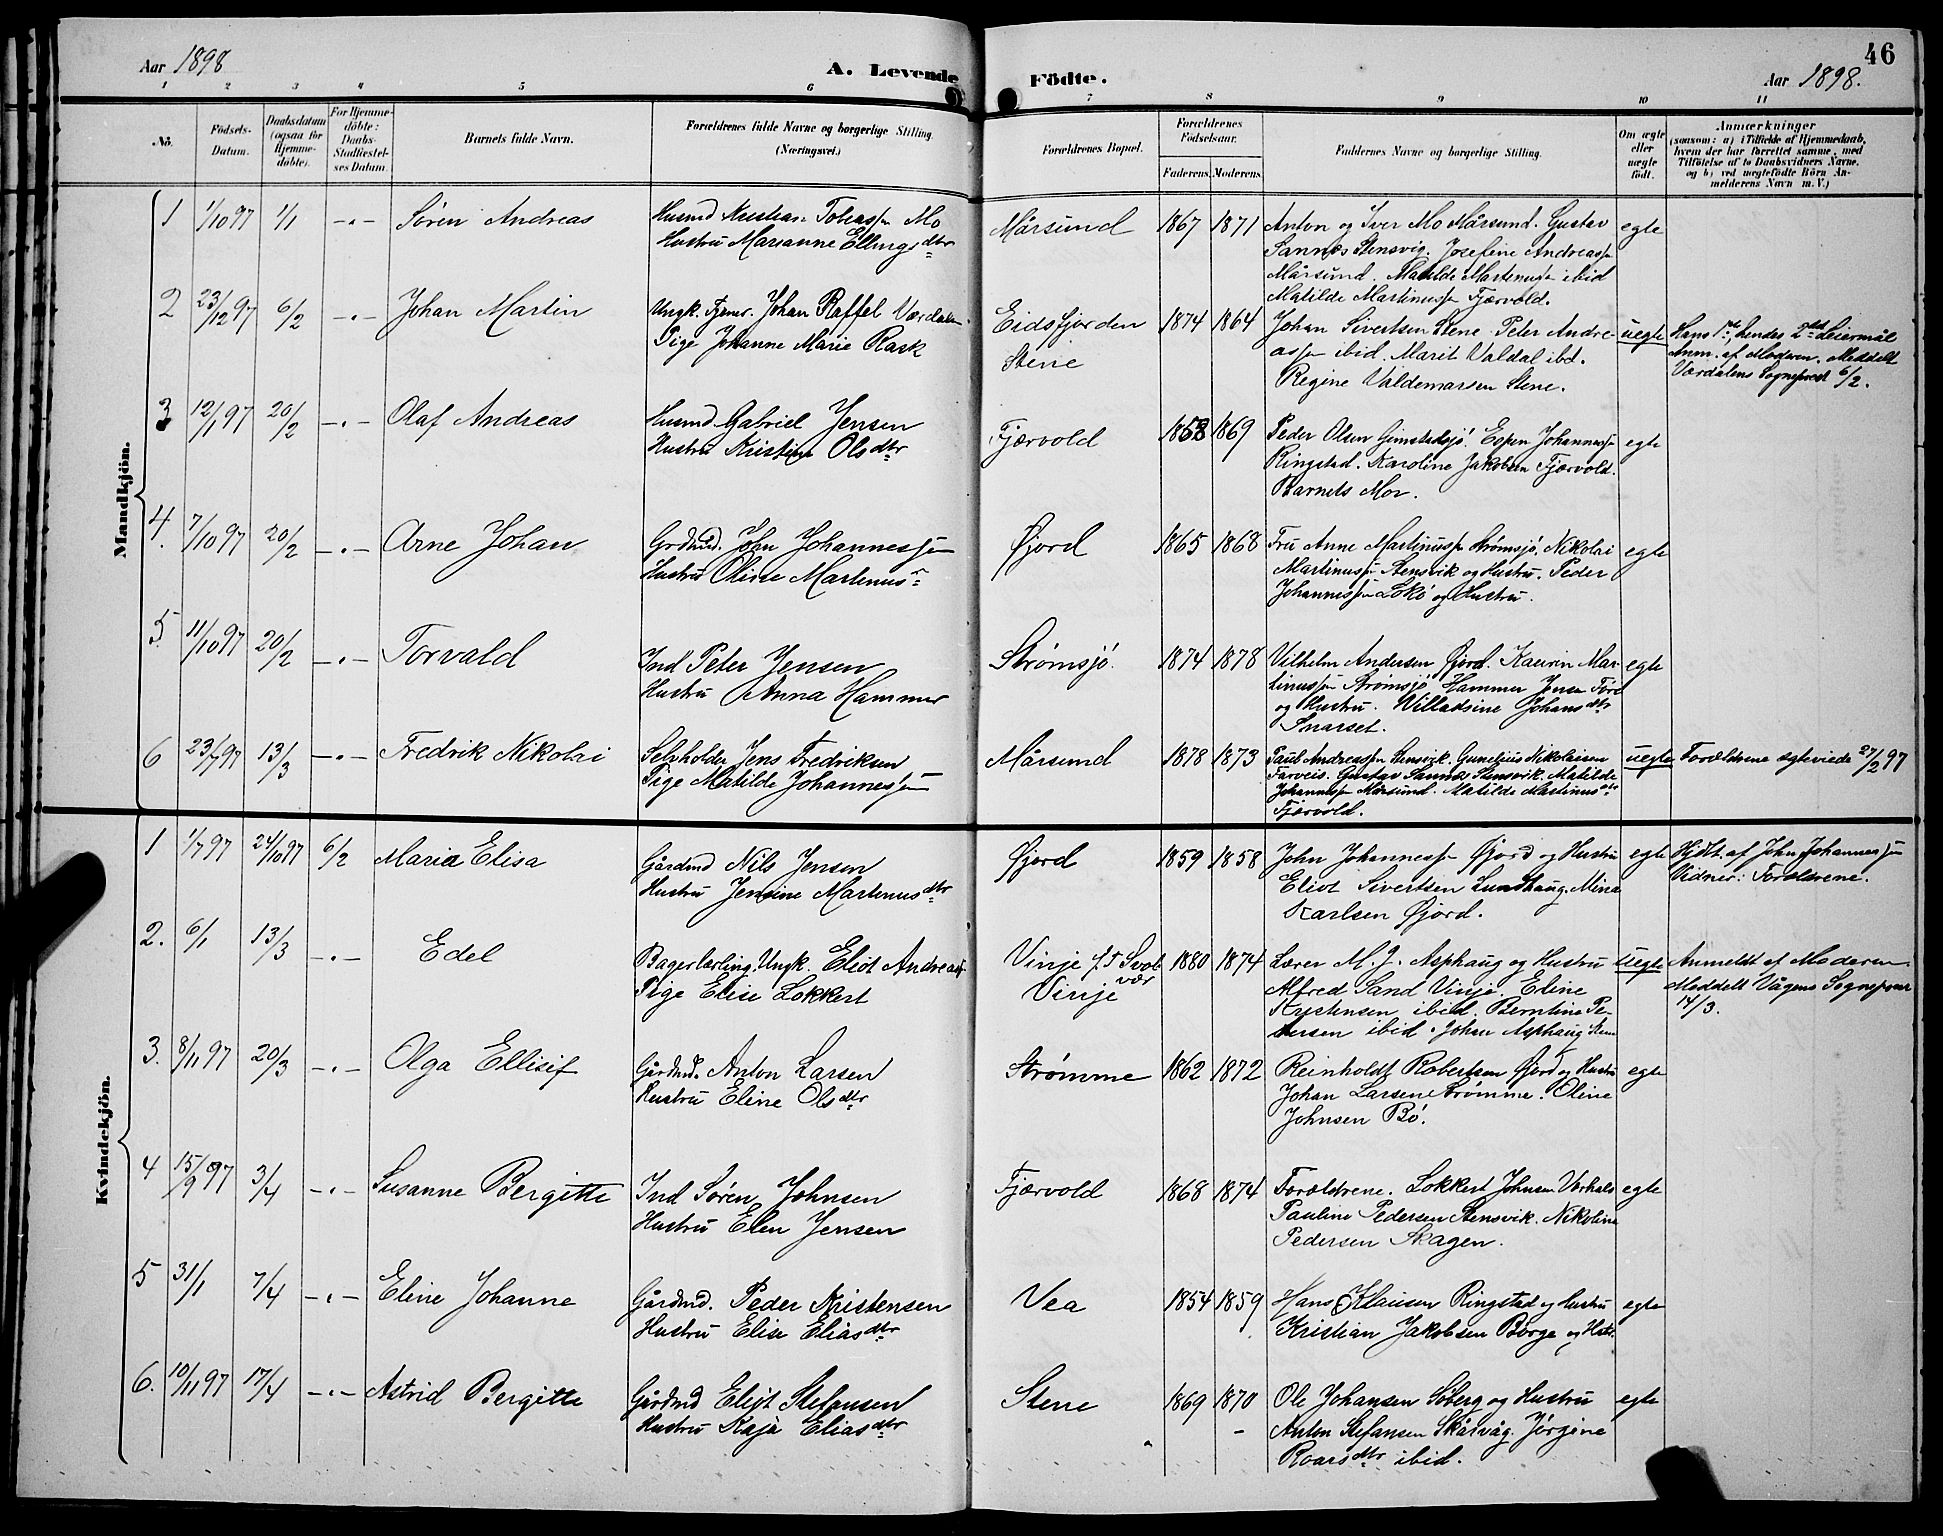 46
Aar 1898
A. Levende Födte.
Aar 1898.
1 2 3 4 5 6 7 8 9 10 11
No.
Födsels-Datum.
Daabsdatum (ogsaa for Hjemmedöbte).
For Hjemmedöbte: Daabs-Stadfæstelses Datum.
Barnets fulde Navn.
Forældrenes fulde Navne og borgerlige Stilling. (Næringsvei.)
Forældrenes Bopæl.
Forældrenes Födselsaar.
Faderens. Moderens.
Faddernes Navne og borgerlige Stilling.
Om ægte eller uægte födt.
Anmærkninger
(saasom: a) i Tilfælde af Hjemmedaab, hvem der har forrettet samme, med Tilföielse af to Daabsvidners Navne, og b) ved uægtefödte Börn Anmelderens Navn m. V.)
Mandkjön.
1 1/10 97 1/1 -"- Søren Andreas
Husmd Kristian Tobiassn Mo
Hustru Marianne Ellingsdtr
Mårsund 1867 1871
Anton og Iver Mo Mårsund. Gustav
Sannes Stensvig. Josefine Andreassn
Mårsund. Matilde Martinussn ibid
Matilde Martinussn Fjærvold.
egte
2 23/12 97 6/2 -"- Johan Martin
Ungk. Tjener. Johan Raffel Værdalen
Pige Johanne Marie Rask
Eidsfjorden
Stene
1874 1864
Johan Sivertsen Stene. Peter Andre-
assn ibid. Marit Valdal ibd.
Regine Valdemarsen Stene.
uegte
Hans 1ste, hendes 2det Leiermål
Anm. af Moderen. Meddelt
Værdalens Sognepræst 6/2.
3 12/1 97 20/2 -"- Olaf Andreas
Husmd Gabriel Jensen
Hustru Kristine Olsdtr
Fjærvold 1858 1869
Peder Olsen Gimstadsjö. Espen Johannessn
Ringstad. Karoline Jakobsen Fjærvold.
Barnets Mor.
egte
4. 7/10 97 20/2 -"- Arne Johan
Grdmd. John Johannessn
Hustru Oline Martinus
Øjord 1865 1868
Fru Anne Martinussn Strømsjö. Nikolai
Martinussn Stensvik og Hustru. Peder
Johannessn Lökö og Hustru.
egte
5. 11/10 97 20/2 -"- Torvald
Ind Peter Jensen
Hustru Anna Hammer
Strømsjö. 1874 1878
Vilhelm Andersen Øjord. Kaurin Mar-
tinussn Strømsjö Hammer Jensen Före
og Hustru. Villadsine Johansdtr
Snarset.
egte
6 23/7 97 13/3 -"- Fredrik Nikolai
Selvholder Jens Fredriksen
Pige Matilde Johannessn
Mårsund 1878 1873
Paul Andreassn Stensvik. Gunelius Nikolaisen
Farveis. Gustav Sannes Stensvik. Matilde
Johannessn Mårsund. Matilde Martinusdtr
Fjærvold.
uegte
Forældrene egteviede 27/2 97
Kvindekjön.
1 1/7 97 24/10 97 6/2 Maria Elisa
Gårdmd Nils Jensen
Hustru Jensine Martinusdtr
Øjord 1859 1858
John Johannessn Øjord og Hustru
Eliot Sivertsen Lundhaug. Mina
Karlsen Øjord.
egte
Hjdt. af John Johannessn
Vidner: Forældrene.
2. 6/1 13/3 -"- Edel
Bagerlærling. Ungk. Eliot Andreassn
Pige Elise Lokkert
Vinje p.t Svol-
vær
Vinje
1880 1874
Lærer M. J. Asphaug og Hustru
Alfred Sand Vinje. Eline
Kristensen ibid. Berntine Pe-
dersen ibid. Johan Asphaug Stene
uegte
Anmeldt af Moderen
Meddelt Vågens Sognepræst
14/3.
3. 8/11 97 20/3 -"- Olga Ellisif
Gårdmd. Anton Larsen
Hustru Eline Olsdtr
Strømme 1862 1872
Reinholdt Robertsen Øjord og Hustru
Johan Larsen Strømme. Oline
Johnsen Bö.
egte
4 15/9 97 3/4 -"- Susanne Bergitte
Ind Søren Johnsen
Hustru Elen Jensen
Fjærvold 1868 1874
Forældrene. Lokkert Johnsen Vorhals
Pauline Pedersen Stensvik. Nikoline
Pedersen Skagen.
egte
5 31/1 7/4 -"- Eline Johanne
Gårdmd. Peder Kristensen
Hustru Elise Eliasdtr
Vea 1854 1859
Hans Klausen Ringstad og Hustru
Kristian Jakobsen Børge og Hstr.
egte
6. 10/11 97 17/4 -"- Astrid Bergitte
Gårdmd Eliot Stefansen
Hustru Kaja Eliasdtr
Stene 1869 1870
Ole Johansen Söberg og Hustru
Anton Stefansen Skålvåg. Jörgine
Roarsdtr ibid.
egte